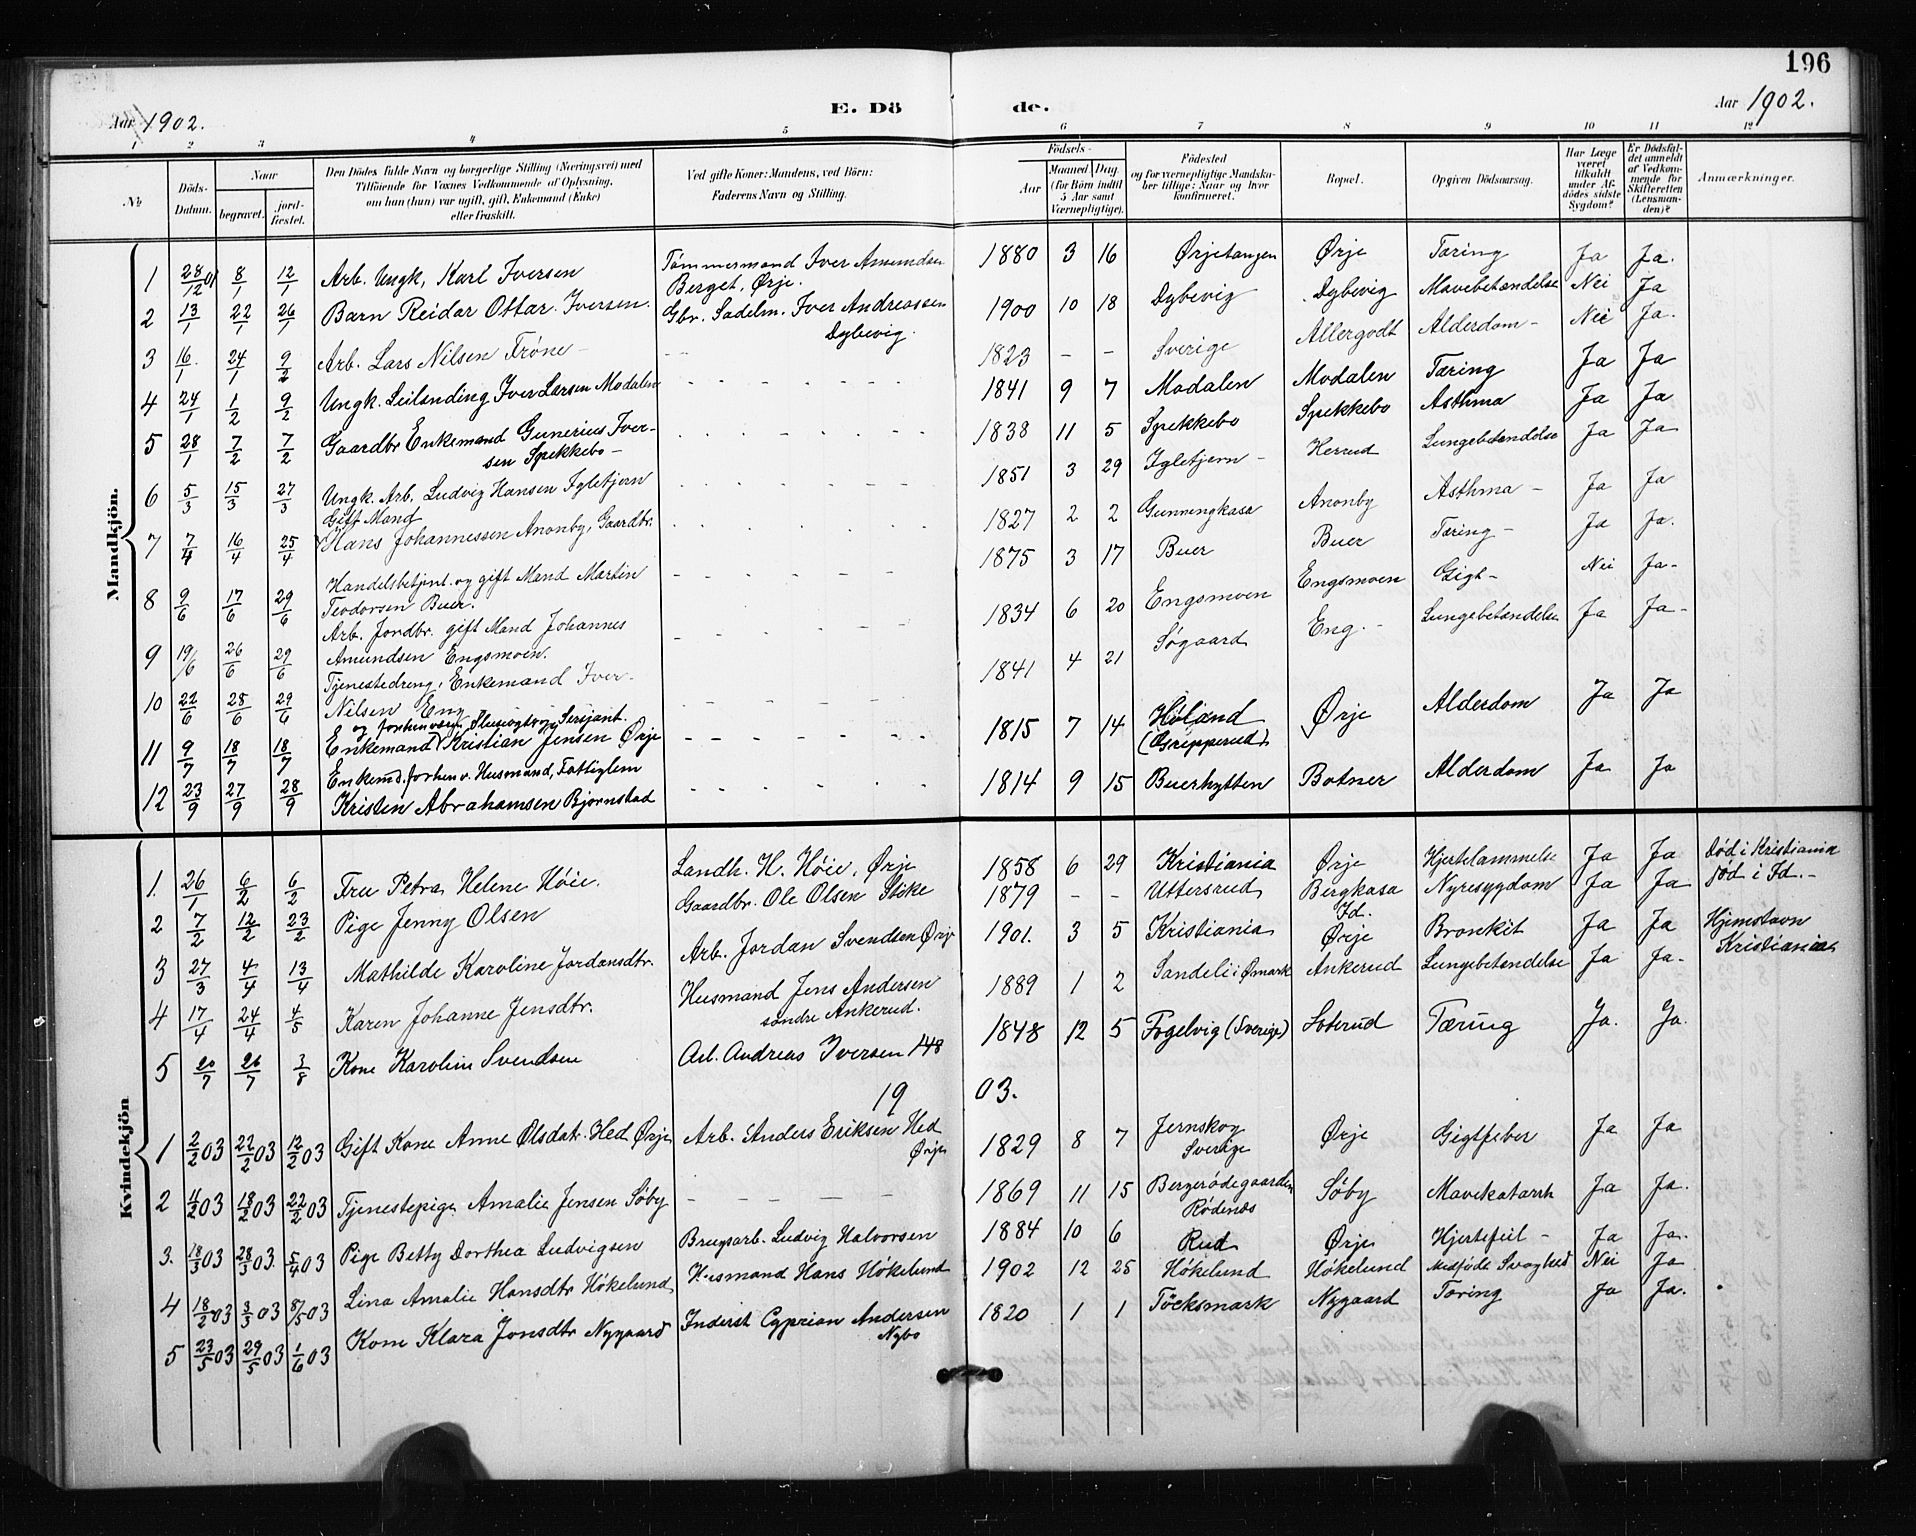 196
Aar 1902.
E. Döde.
Aar 1902.
1 2 3 4 5 6 7 8 9 10 11 12
№
Döds-Datum.
Naar
begravet.
jord-fæstet.
Den Dödes fulde Navn og borgerlige Stilling (Næringsvei) med
Tilföiende for Voxnes Vedkommende af Oplysning,
om han (hun) var ugift, gift, Enkemand (Enke)
eller fraskilt.
Ved gifte Koner: Mandens, ved Börn:
Faderens Navn og Stilling.
Födsels-
Aar
Maaned Dag
(for Börn indtil
5 Aar samt
Værnepligtige).
Födested
og for værnepligtige Mandska-
ber tillige: Naar og hvor
konfirmeret.
Bopæl.
Opgiven Dödsaarsag.
Har Læge
været
tilkaldt
under Af-
dödes sidste
Sygdom?
Er Dödsfal-
det anmeldt
af Vedkom-
mende for
Skifteretten
(Lensman-
den)?
Anmærkninger.
Mandkjön.
1 28/12 01 8/1 12/1 Arb. Ungk. Karl Iversen Tömmermand Iver Amundsen Berget, Ørje. 1880 3 16 Ørjetangen Ørje Tæring Ja Ja.
2 13/1 22/1 26/1 Barn Reidar Ottar Iversen. Gbr. Sadelm. Iver Andreassen Dybevig. 1900 10 18 Dybevig Dybevig Mavebetændelse Nei Ja
3 16/1 24/1 9/2 Arb. Lars Nilsen Tröne - - - 1823 - - Sverige Allergodt Alderdom - Nei Ja.
4 24/1 1/2 9/2 Ungk. Leilending Iver Larsen Modalen 1841 9 7 Modalen Modalen Tæring Ja Ja
5 28/1 7/2 7/2 Gaardbr Enkemand Gunerius Iver-
sen Spekkebo - 1838 11 5 Spekkebo Spekkebo Asthma Ja Ja
6 5/3 15/3 27/3 Ungk. Arb. Ludvig Hansen Igletjern 1851 3 29 Igletjern - Herrud Lungebetændelse Ja Ja
7 7/4 16/4 25/4 Gift Mand
Hans Johannessen Anonby, Gaardbr. 1827 2 2 Gunnengkasa Anonby Asthma - Ja Ja
8 9/6 17/6 29/6 Handelsbetjent. og gift Mand Martin
Teodorsen Buer. 1875 3 17 Buer Buer Tæring - Ja Ja.
9 19/6 26/6 29/6 Arb. Jordbr. gift Mand Johannes
Amundsen Engsmoen. 1834 6 20 Engsmoen Engsmoen Gigt - Nei Ja -
10 22/6 28/6 29/6 Tjenestedreng, Enkemand Iver
Nilsen Eng 1841 4 21 Sögaard Eng. - Lungebetændelse Ja Ja -
11 9/7 18/7 18/7 og forhenværn. Slusevogter og Sersjant.
Enkemand Kristian Jensen Ørje 1815 7 14 Höland
(Gripperud) Ørje Alderdom Ja Ja
12 23/9 27/9 28/9 Enkemd. forhenv. Husmand, Fattiglem
Kristen Abrahamsen Bjørnstad 1814 9 15 Buerhytten Botner Alderdom Ja Ja
Kvindekjön
1. 26/1 6/2 6/2 Fru Petra Helene Höie. Landh. H. Höie, Ørje 1858 6 29 Kristiania Ørje Hjertelammelse Ja Ja Död i Kristiania
2 7/2 12/2 23/2 Pige Jenny Olsen Gaardbr. Ole Olsen Stike 1879 - - Uttersrud Bergkasa
Id. Nyresygdom Ja Ja Död i Id. -
3 27/3 4/4 13/4 Mathilde Karoline Jordansdtr. Arb. Jordan Svendsen Ørje 1901. 3 5 Kristiania Ørje Bronkit Ja Ja Hjemstavn
Kristiania
4 17/4 24/4 4/5 Karen Johanne Jensdtr. Husmand Jens Andersen
söndre Ankerud. 1889 1 2 Sandeli i Ømark Ankerud Lungebetændelse Ja Ja -
5 20/7 26/7 3/8 Kone Karolin Svendsen Arb. Andreas Iversen 148 1848 12 5 Fogelvig (Sverige) Soterud Tæring Ja. Ja.
1903.
1 2/2 03 22/2 03 12/2 03 Gift Kone Anne Olsdat. Hed Ørje Arb. Anders Eriksen Hed
Ørje 1829 8 7 Jernskog
Sverige Ørje Gigtfeber Ja Ja
2 4/2 03 18/2 03 22/2 03 Tjenestepige Amalie Jensen Söby - - - - - 1869 11 15 Bergerödegaarden
Rödenæs Söby Mavekatarrh Ja Ja.
3. 18/3 03 28/3 03. 5/4 03 Pige Betty Dorthea Ludvigsen Brugsarb. Ludvig Halvorsen 1884 10 6 Rud Ørje Hjertefeil - Ja Ja.
4 18/2 03 3/3 03 8/5 03 Lina Amalie Hansdtr Hökelund Husmand Hans Hökelund 1902 12 25 Hökelund Hökelund Medfödt Svaghed Nei Ja
5 23/5 03 29/5 03 1/6 03 Kone Klara Jonsdtr Nygaard Inderst Cyprian Andersen
Nybo 1820 1 1 Töcksmark Nygaard Tæring Ja Ja.